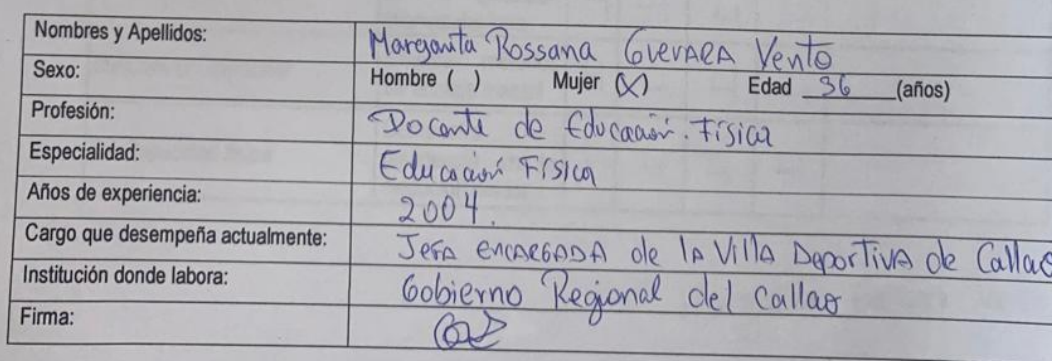 Nombres y Apellidos: Margarita Rossana Guevara Vento
Sexo: Hombre ( ) Mujer (X) Edad 36 (años)
Profesión: Docente de Educación Física
Especialidad: Educación Física
Años de experiencia: 2004.
Cargo que desempeña actualmente: Jefa encargada de la Villa Deportiva de Callao
Institución donde labora: Gobierno Regional del Callao
Firma: